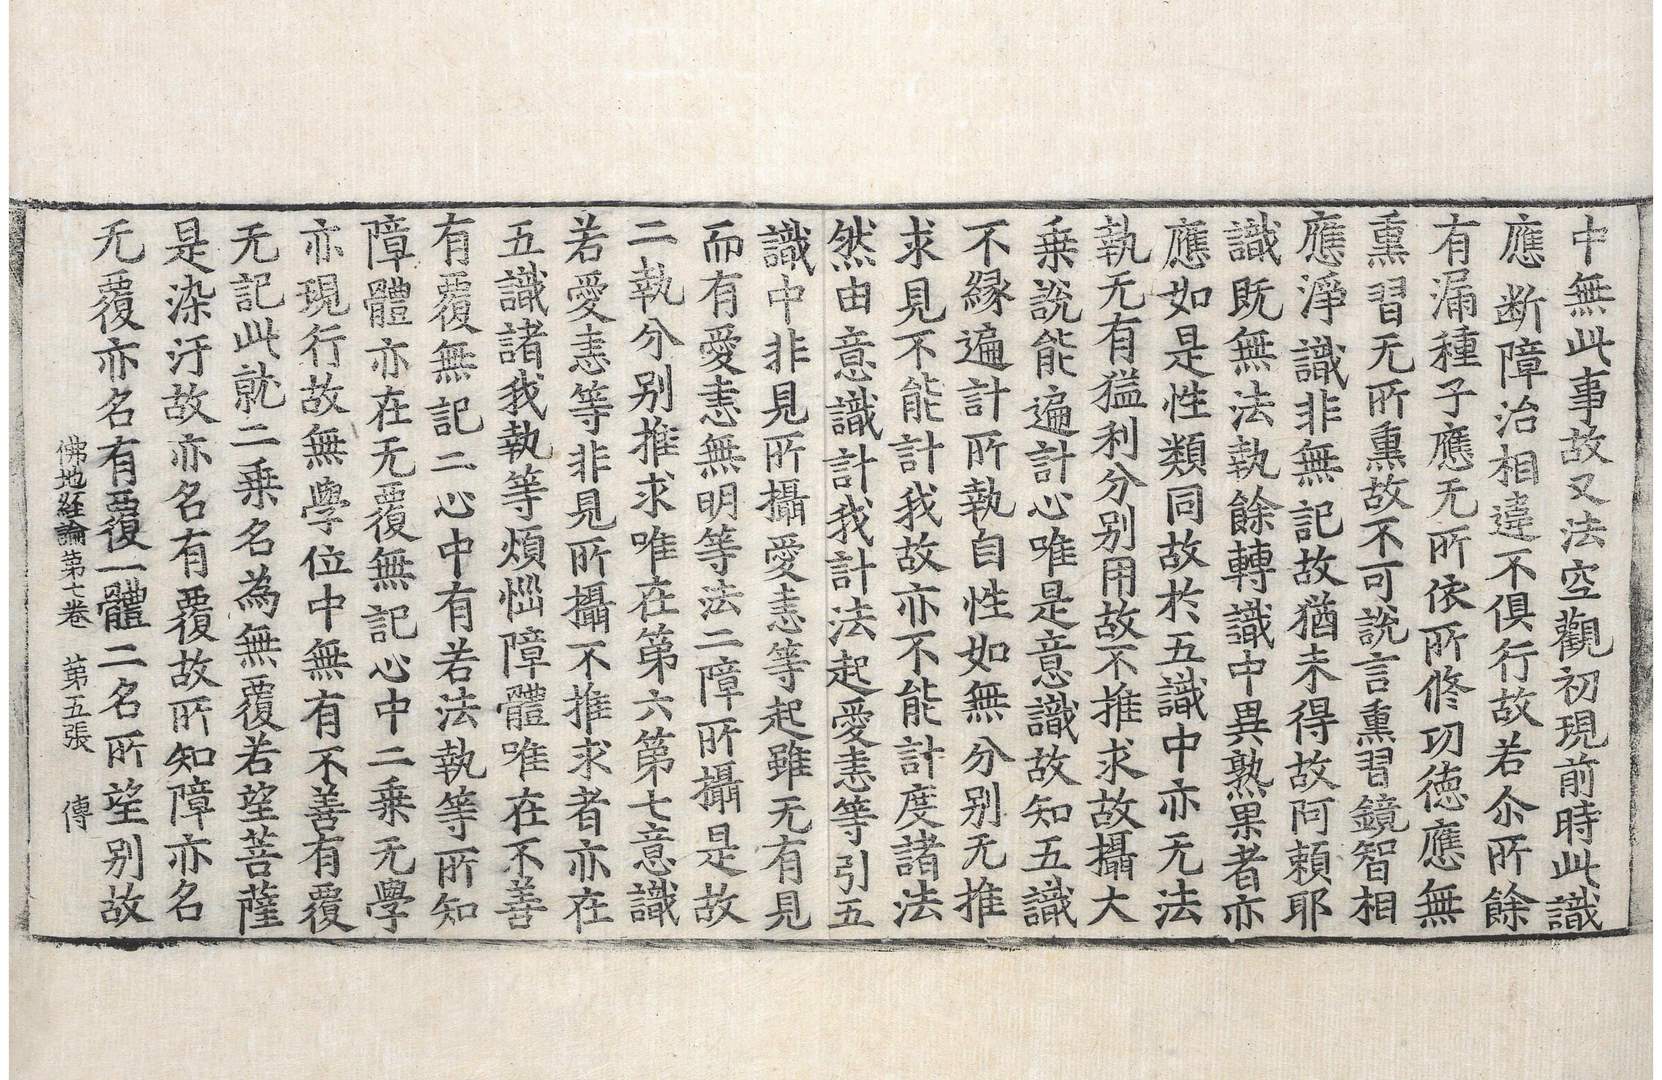 中無此事故又法空觀初現前時此識
應断障治相違不俱行故若尒所餘
有漏種子應无所依所修功德應無
熏習无所熏故不可說言熏習鏡智相
應淨識非無記故猶未得故阿賴耶
識既無法執餘轉識中異熟果者亦
應如是性類同故於五識中亦无法
執无有猛利分别用故不推求故攝大
乗說能遍計心唯是意識故知五識
不縁遍計所執自性如無分别无推
求見不能計我故亦不能計度諸法
然由意識計我計法起愛恚等引五
識中非見所攝愛恚等起雖无有見
而有愛恚無明等法二障所攝是故
二執分别推求唯在第六第七意識
若愛恚等非見所攝不推求者亦在
五識諸我執等煩惱障體唯在不善
有覆無記二心中有若法執等所知
障體亦在无覆無記心中二乗无學
亦現行故無學位中無有不善有覆
无記此就二乗名為無覆若望菩薩
是染汙故亦名有覆故所知障亦名
无覆亦名有覆一體二名所望别故
佛地経論第七卷 第五張 傳